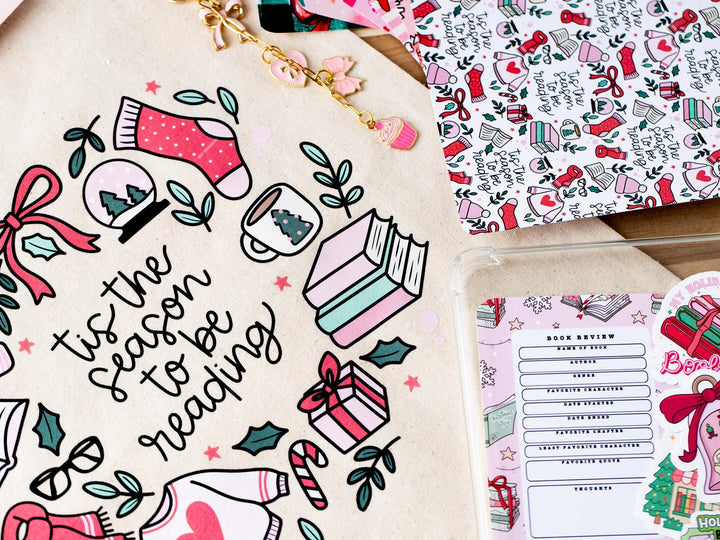 tis the
season
to be
reading
tis the
season
to be
reading
BOOK REVIEW
NAME OF BOOK
AUTHOR
GENRE
FAVORITE CHARACTER
DATE STARTED
DATE ENDED
FAVORITE CHAPTER
LEAST FAVORITE CHARACTER
FAVORITE QUOTE
THOUGHTS
MY HOLID